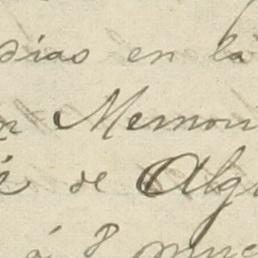 dias en la
Memori
de Alg
á 8